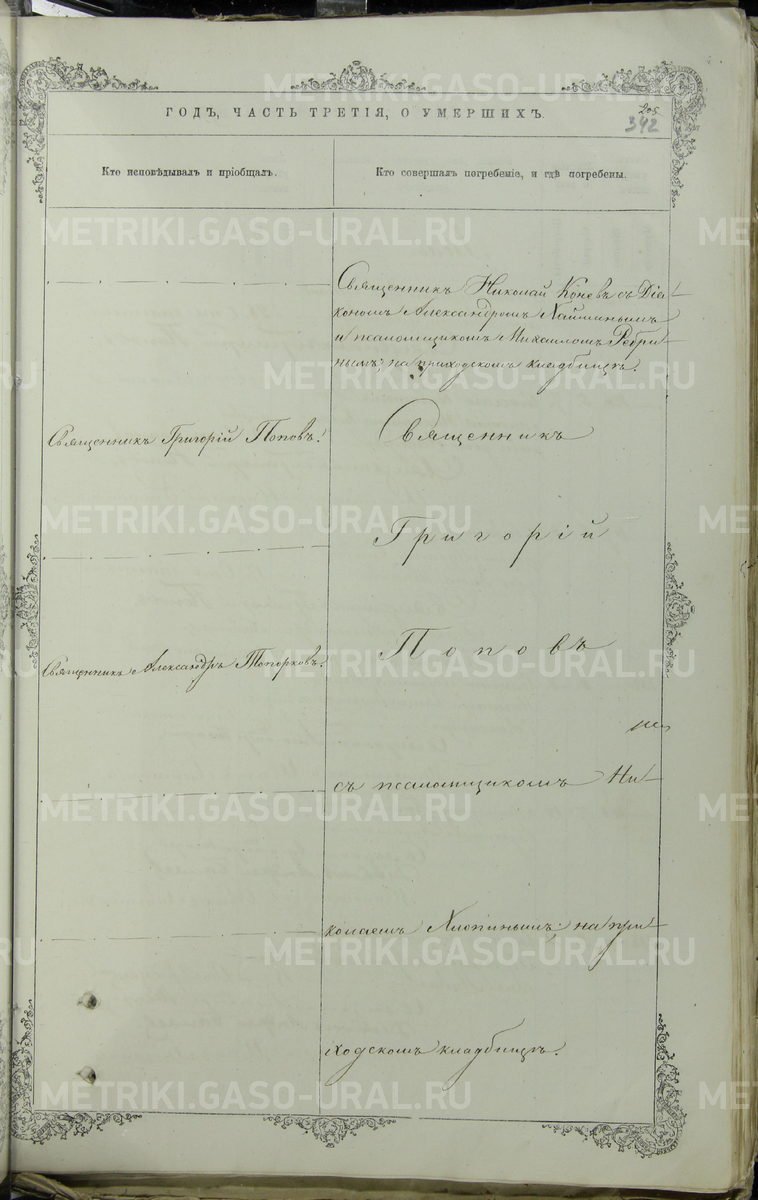 ГОДЪ, ЧАСТЬ ТРЕТІЯ, О УМЕРШИХЪ.
205
342
Кто исповѣдывалъ и пріобщалъ.
Кто совершалъ погребеніе, и гдѣ погребены.
Священникъ Николай Коневъ съ Діа-
кономъ Александромъ
и псаломщикомъ Михаиломъ Ребри-
нымъ; на приходскомъ кладбищѣ.
Священникъ Григорій Поповъ.
Священникъ
Григорій
Священникъ Александръ Топорковъ.
Поповъ
съ псаломщикомъ Ни-
колаемъ Хлопинымъ; на при-
ходскомъ кладбищѣ.
METRIKI.GASO-URAL.RU